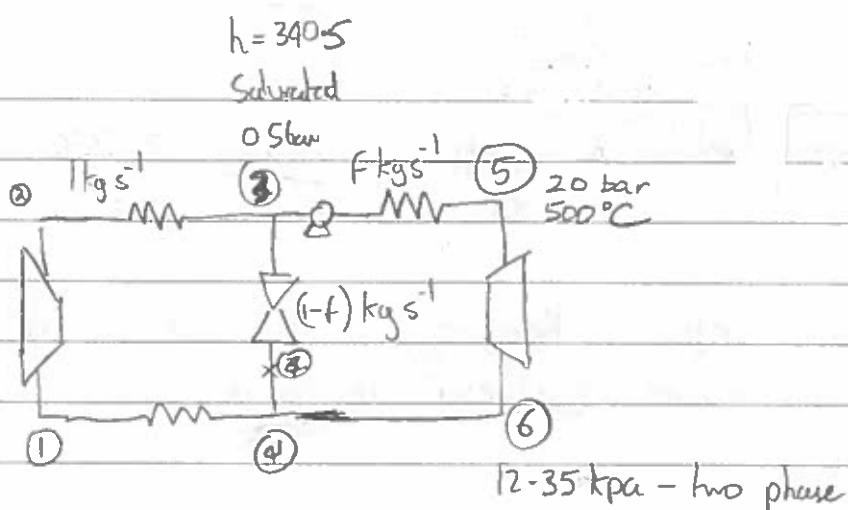 h = 340.5
Saturated
0.5bar
② 1 kg s⁻¹
③
f kg s⁻¹
⑤ 20 bar
500°C
(1-f) kg s⁻¹
①
④
⑥
12-35 kpa - two phase